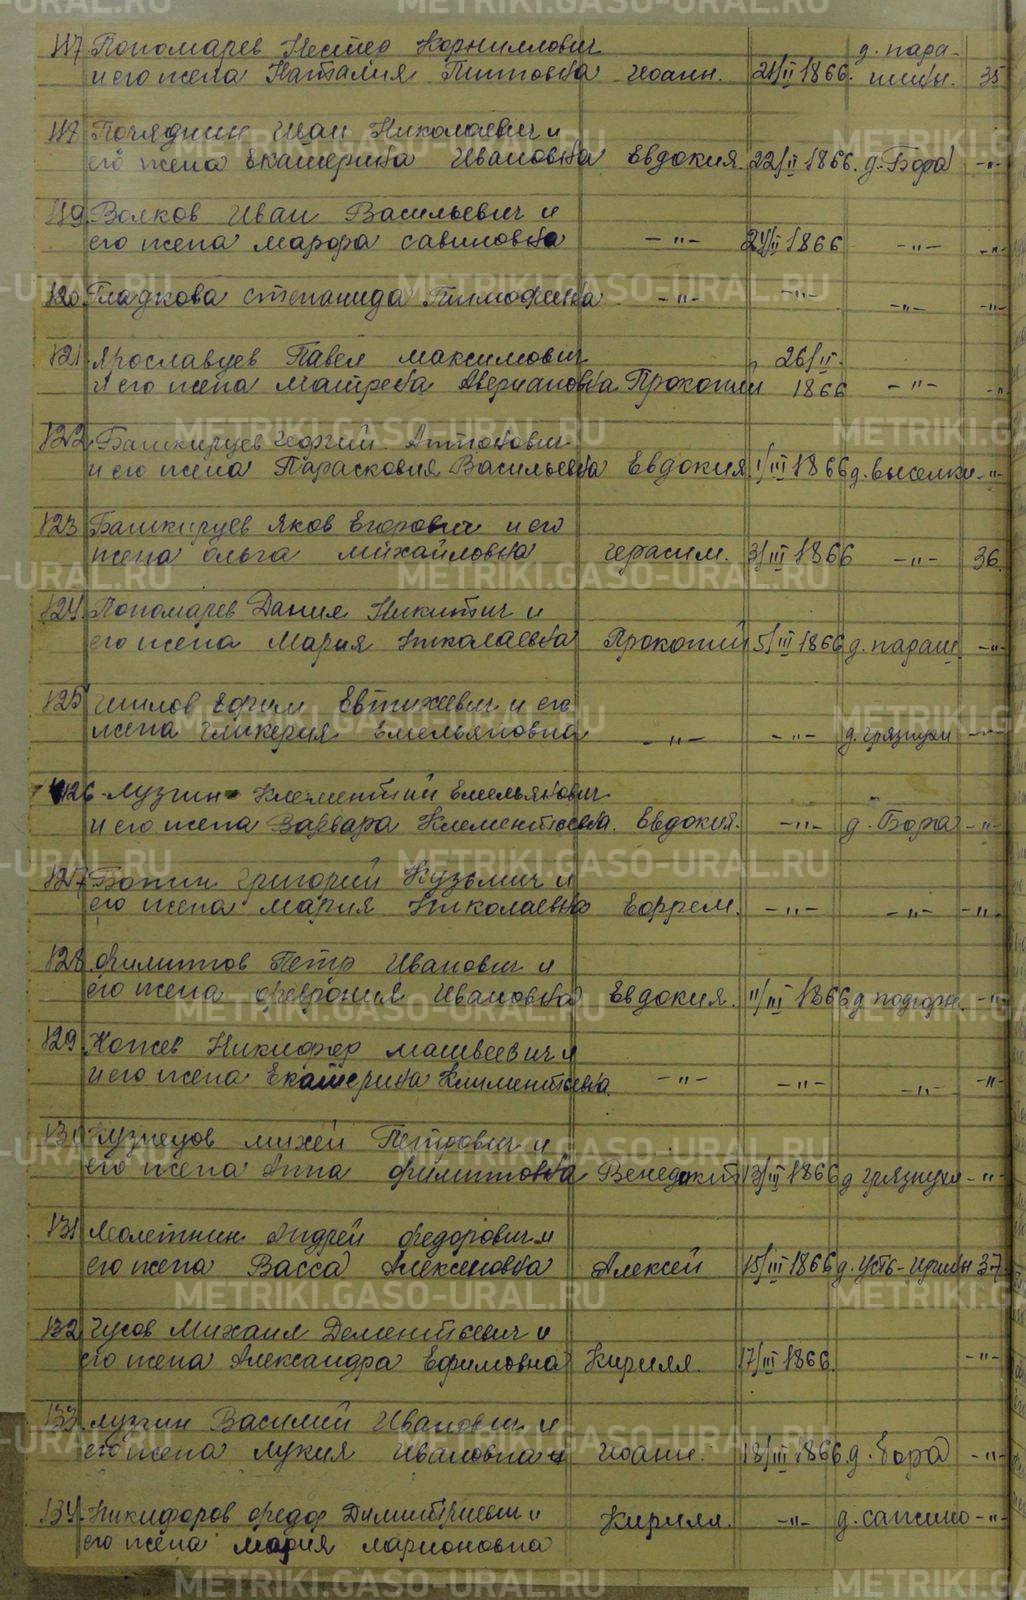 117 Пономарев Нестер Корниллович д. пара-
и его жена Наталия Титовна Иоанн. 21/II 1866. шины. 35
117 Почядшин Иван Николаевич и
его жена Екатерина Ивановна Евдокия. 22/II 1866. д. Бора -"-
119. Волков Иван Васильевич и
его жена марфа савиновна -"- 24/II 1866 -"- -"-
120. Гладкова степанида Тимофеевна -"- -"- -"- -"-
121. Ярославцев Павел максимович 26/II.
и его жена матрена Аверкиановна Прокопий 1866 -"- -"-
122. Башкирцев Георгий Антонович
и его жена Парасковия Васильевна Евдокия. 1/III 1866 д. Выселки -"-
123 Башкирцев Яков Егорович и его
жена ольга михайловна Герасим. 3/III 1866 -"- 36.
124 Пономарев Данил Никитич и
его жена Мария Николаевна Прокопий 5/III 1866 д. параш. -"-
125 Шилов Ефим Евтихеевич и его
жена Гликерия Емельяновна -"- -"- д. грязнухи -"-
126 Лузгин Климентий Емельянович
и его жена Варвара Клементьевна. Евдокия. -"- д. Бора -"-
127 Ботин григорий Кузьмич и
его жена мария Николаевна Ефрем. -"- -"- -"-
128. Филиппов Петр Иванович и
его жена феврония Ивановна Евдокия. 11/III 1866 д. подгорн. -"-
129. Котев Никифор матвеевич и
и его жена Екатерина Климентьевна. -"- -"- -"- -"-
130 Кузнецов михей Петрович и
его жена Анна филипповна Венедикт 13/III 1866 д. грязнухи -"-
131 Молетнин Андрей федорович и
его жена Васса Алексеевна Алексей 15/III 1866 д. Усть-Иргины 37
132 Чусов Михаил Дементьевич и
его жена Александра Ефимовна Кирилл. 17/III 1866. -"-
133. лузгин Василий Иванович и
его жена лукия Ивановна Иоанн. 18/III 1866. д. бора -"-
134. Никифоров федор Димитриевич и Кирилл. -"- д. сапсино -"-
его жена мария ларионовна
METRIKI.GASO-URAL.RU